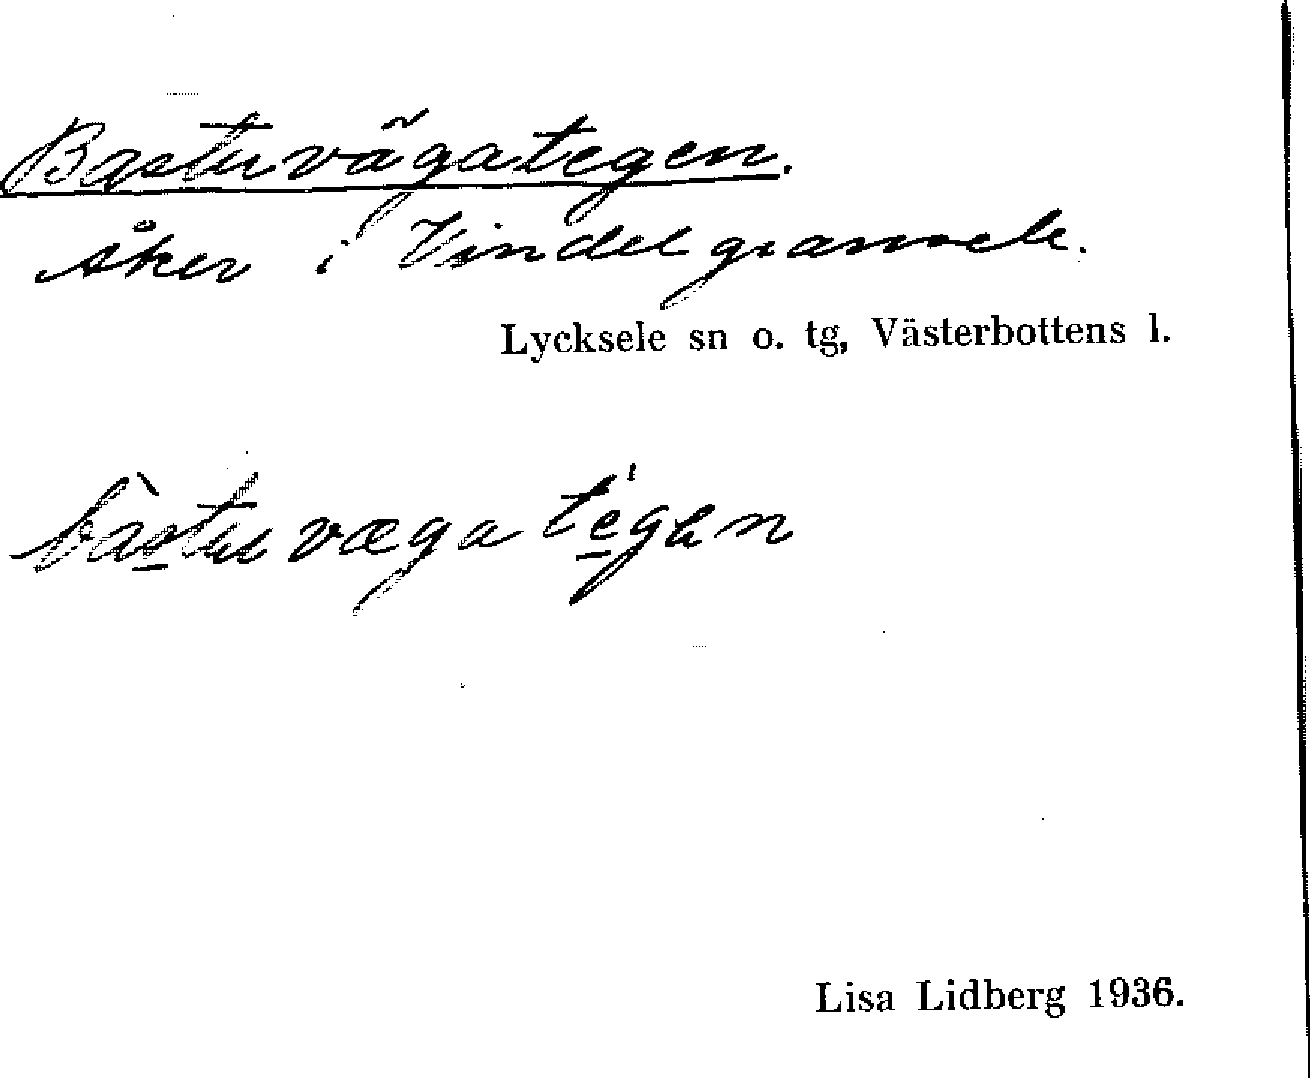 Bastuvägategen.
Åker i Vindelgransele.
Lycksele sn o. tg, Västerbottens l.
bàstuvægatégen
Lisa Lidberg 1936.